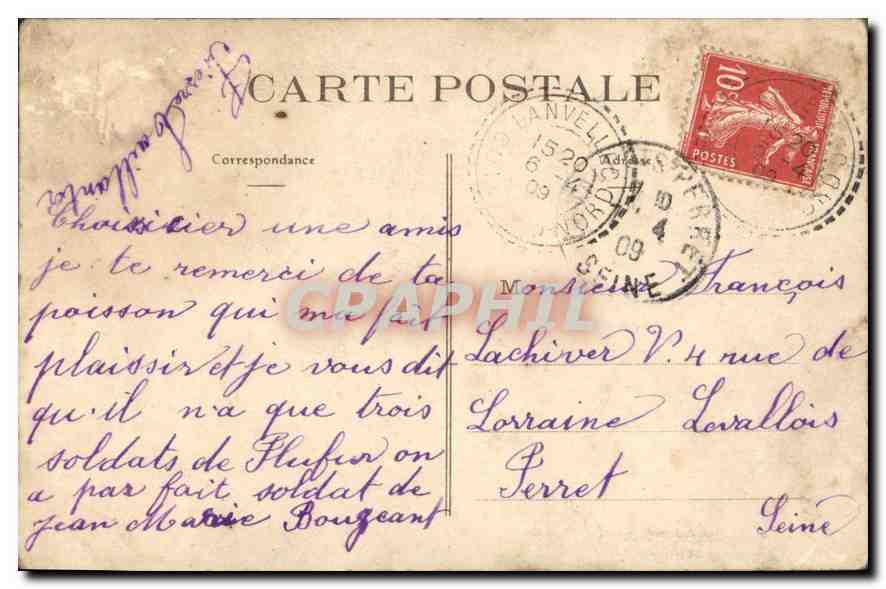 CARTE POSTALE
Correspondance
Adresse
10c
POSTES
LANVELLEC
15 20
6 -4
09
NORD
PERRET
4
09
SEINE
CPAPHIL
Choisicier une amis
je te remerci de ta
poisson qui ma fait
plaissir et je vous dit
qu'il n'a que trois
soldats de Plufur on
a par fait soldat de
Jean Marie Bougeant
Monsieur François
Lachiver V. 4 rue de
Lorraine Levallois
Perret
Seine